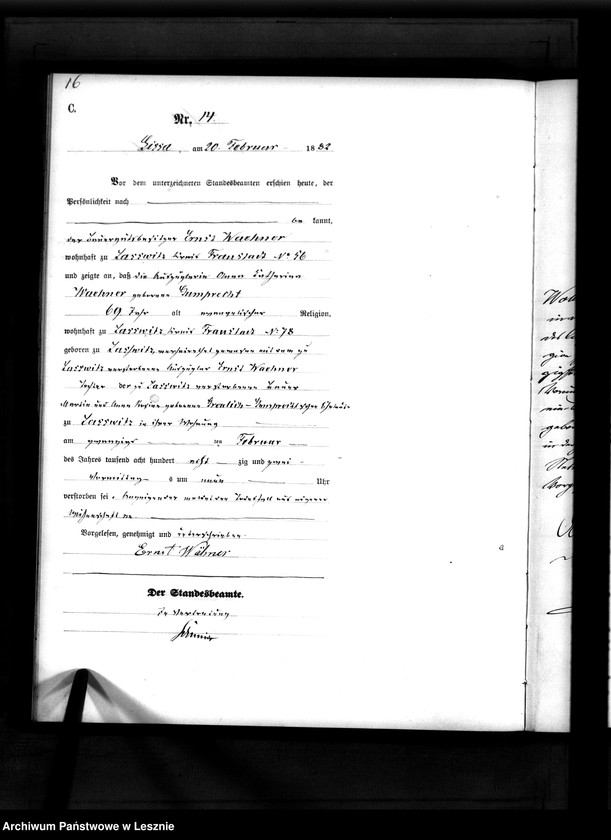 16
C.
Nr. 14.
Lissa, am 20. Februar 1882
Vor dem unterzeichneten Standesbeamten erschien heute, der
Persönlichkeit nach
be kannt,
der Bauergutsbesitzer Ernst Waehner
wohnhaft zu Lasswitz Kreis Fraustadt No 56
und zeigte an, daß die Auszüglerin Anna Catharina
Waehner geborene Gumprecht
69 Jahr alt evangelischer Religion,
wohnhaft zu Lasswitz Kreis Fraustadt No 78
geboren zu Lasswitz, verheirathet gewesen mit dem zu
Lasswitz verstorbenen Auszügler Ernst Waehner
Tochter der zu Lasswitz verstorbenen Bauer
Martin und Anna Rosine geborene Gumprecht'schen Eheleute
zu Lasswitz in ihrer Wohnung
am zwanzigs ten Februar
des Jahres tausend acht hundert acht zig und zwei
Vormittags um neun Uhr
verstorben sei. Anzeigender meldet den Todesfall aus eigener
Wissenschaft an
Vorgelesen, genehmigt und unterschrieben
Ernst Wähner
Der Standesbeamte.
In Vertretung
Archiwum Państwowe w Lesznie